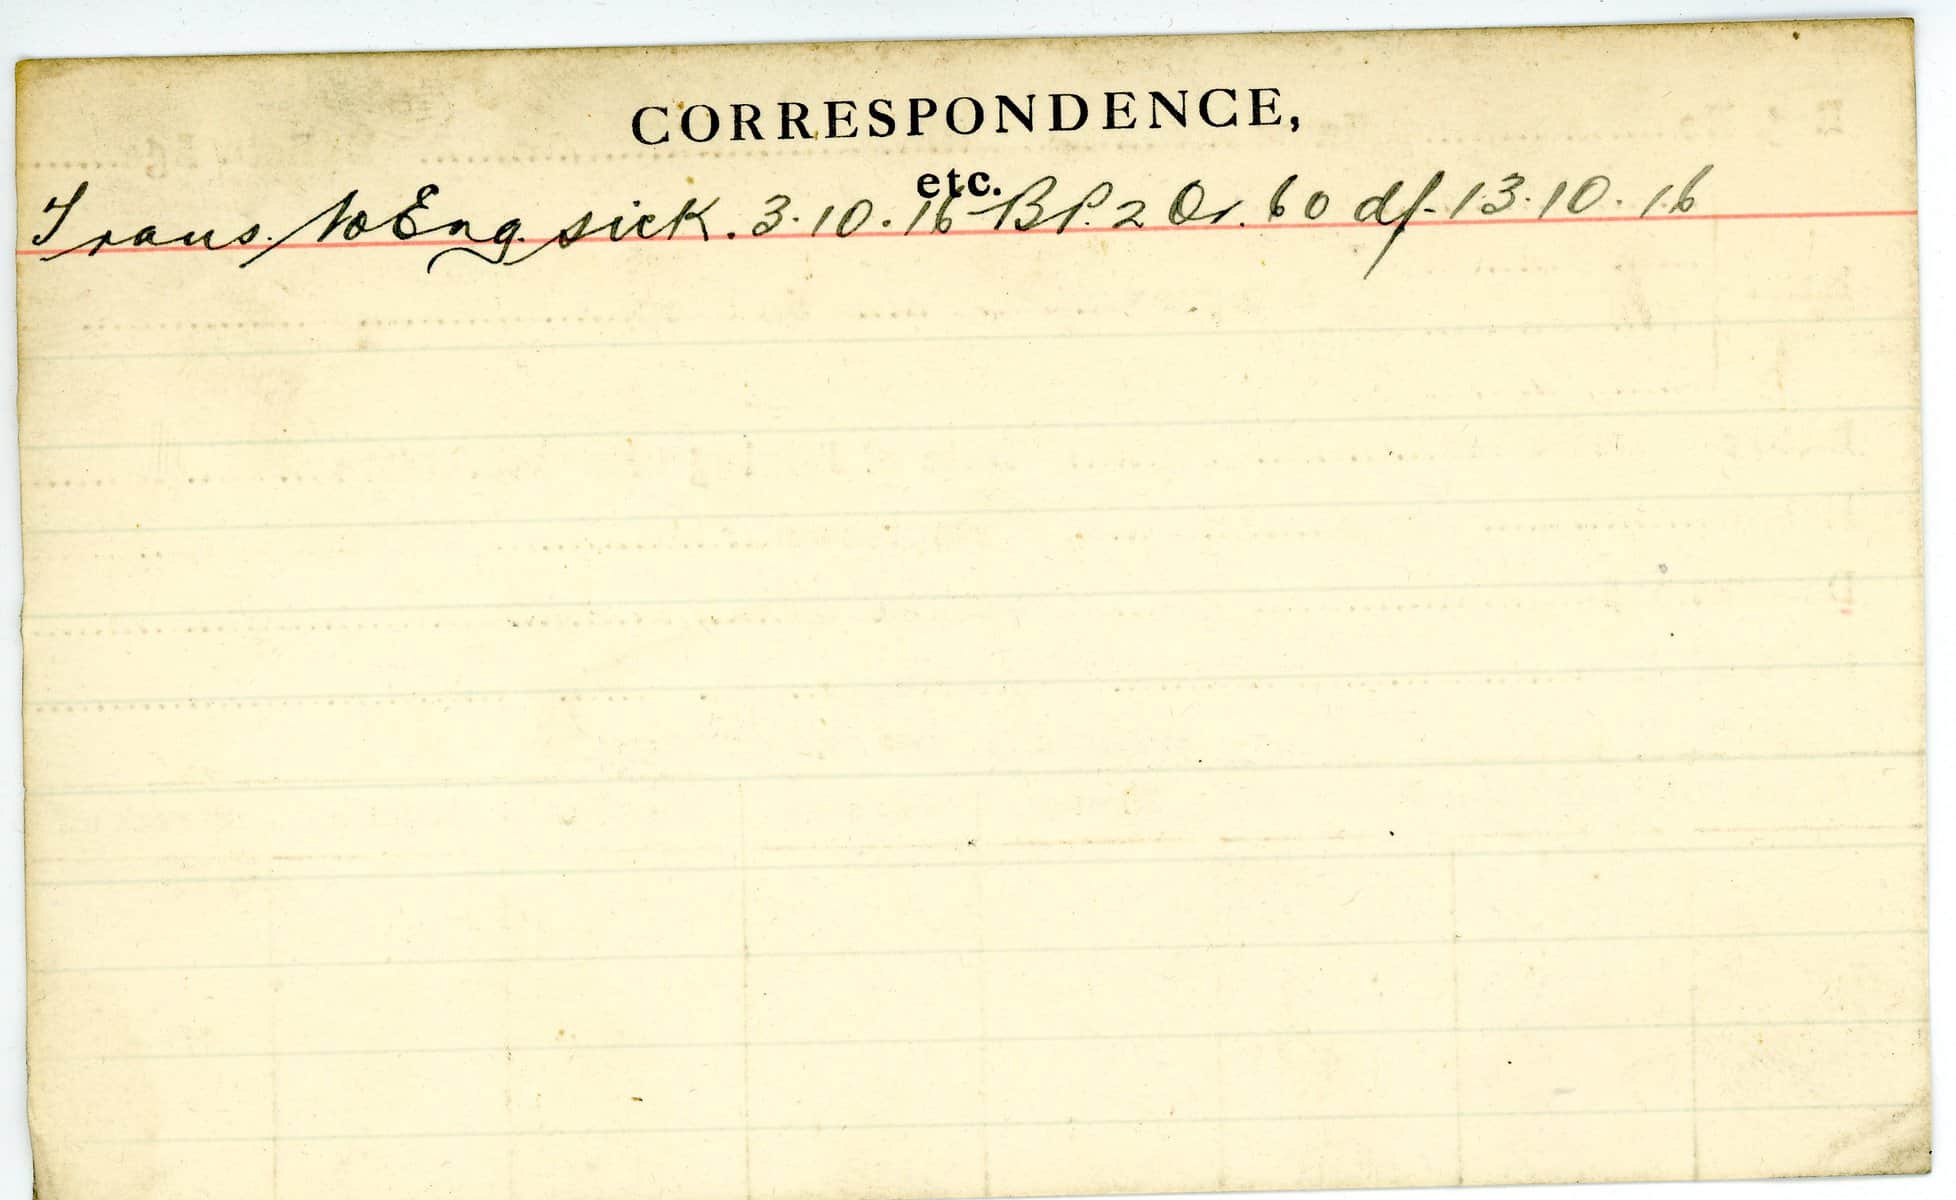 CORRESPONDENCE,
etc.
Trans. to Eng. sick. 3.10.16 B.P. 2 Or. 60 df. 13.10.16